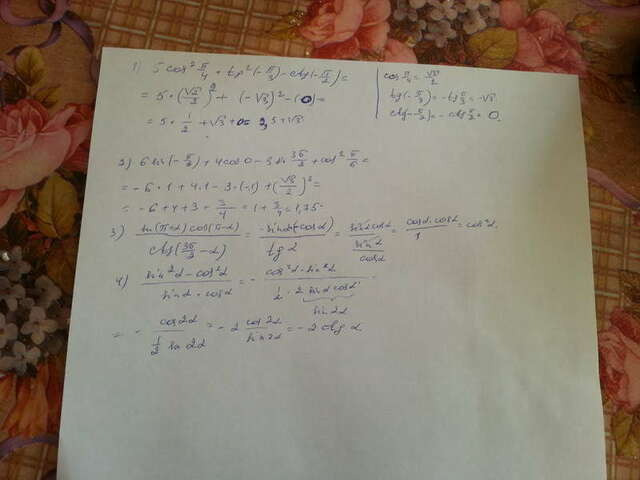 1) 5 cos² π/4 + tg² (-π/3) - ctg (-π/2) =
= 5 * (√2/2)² + (-√3)² - (0) =
= 5 * 1/2 + √3 + 0 = 2,5 + √3
cos π/4 = √2/2
tg (-π/3) = -tg π/3 = -√3
ctg (-π/2) = -ctg π/2 = 0
2) 6 sin (-π/2) + 4 cos 0 - 3 sin 3π/2 + cos² π/6 =
= -6 * 1 + 4 * 1 - 3 * (-1) + (√3/2)² =
= -6 + 4 + 3 + 3/4 = 1 + 3/4 = 1,75
3) sin(π+α) cos(π-α) / ctg(3π/2 - α) = -sinα(-cosα) / tgα = sinα cosα / sinα/cosα = cosα · cosα / 1 = cos²α
4) sin²α - cos²α / sinα * cosα = - cos²α - sin²α / 1/2 · 2 sinα cosα =
= - cos2α / 1/2 sin2α = - 2 cos2α / sin2α = -2 ctg α